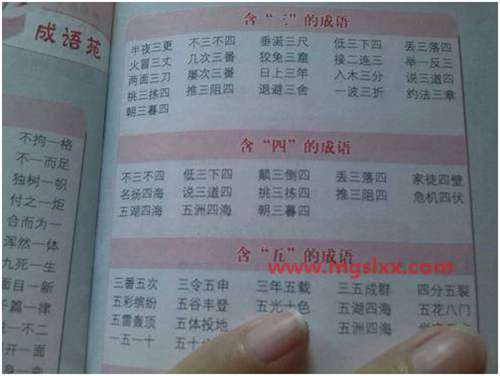 成语苑
不拘一格
不一而足
独树一帜
付之一炬
合而为一
浑然一体
九死一生
面目一新
篇一律
一不二
开一面
含“三”的成语
半夜三更 不三不四 垂涎三尺 低三下四 丢三落四
火冒三丈 几次三番 狡兔三窟 接二连三 举一反三
两面三刀 屡次三番 日上三竿 入木三分 说三道四
挑三拣四 推三阻四 退避三舍 一波三折 约法三章
朝三暮四
含“四”的成语
不三不四 低三下四 颠三倒四 丢三落四 家徒四壁
名扬四海 说三道四 挑三拣四 推三阻四 危机四伏
五湖四海 五洲四海 朝三暮四
含“五”的成语
www.mgslxx.com
三番五次 三令五申 三年五载 三五成群 四分五裂
五彩缤纷 五谷丰登 五光十色 五湖四海 五花八门
五雷轰顶 五体投地 五洲四海
一五一十 五十